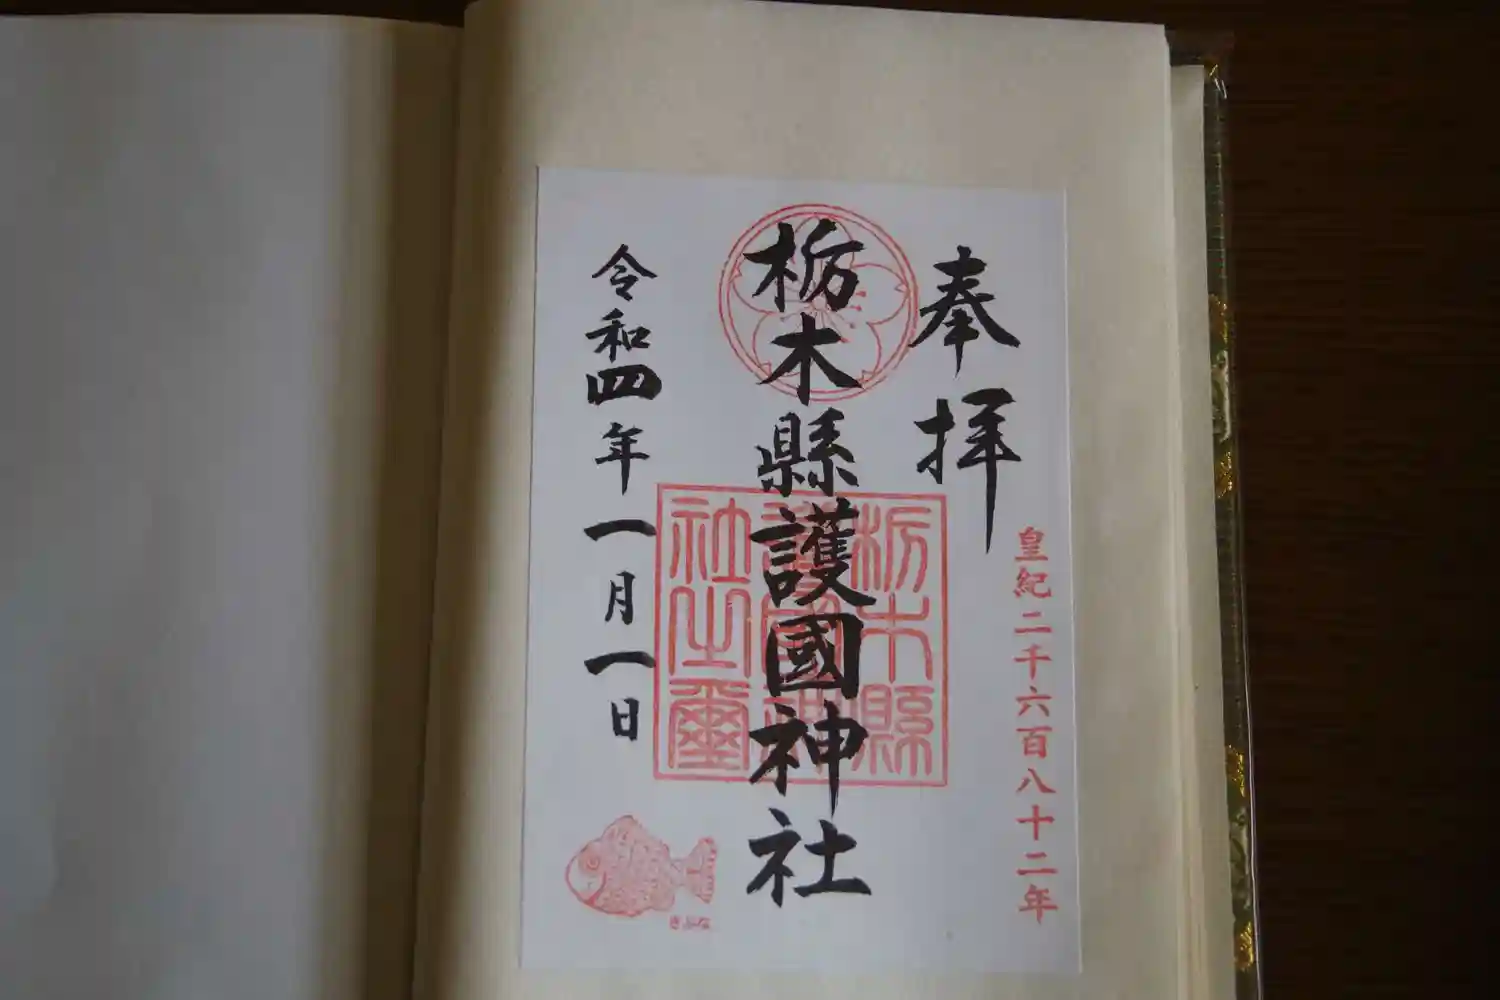 皇紀二千六百八十二年
奉拝
栃木縣護國神社
栃木縣
護國神
社之璽
令和四年一月一日
きぶな